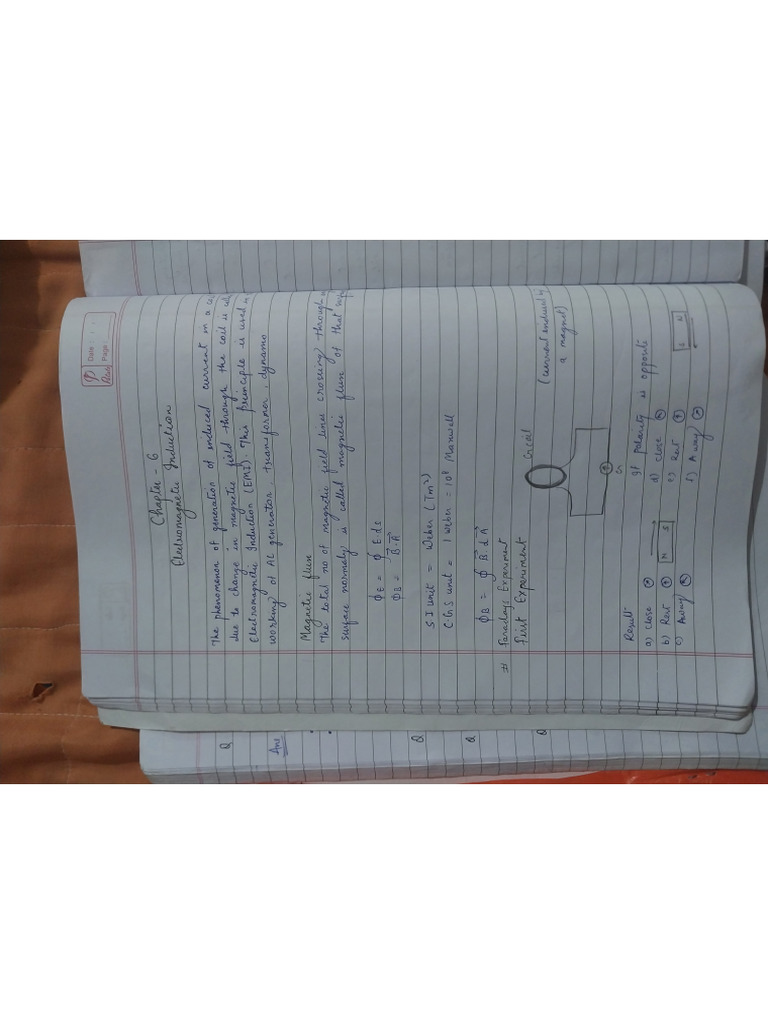 Date :
Page :
Chapter - 6
Electromagnetic Induction
The phenomenon of generation of induced current in a
due to change in magnetic field through the coil is
Electromagnetic Induction (EMI). This principle is used
working of AC generator, transformer, dynamo
Magnetic flux
The total no of magnetic field lines crossing through
surface normaly is called magnetic flux of that
ϕE = ∮ E ds
ϕB = B⃗.A⃗
SI unit = Weber (Tm²)
C.G.S unit = 1 Weber = 10⁸ Maxwell
ϕB = ∮ B⃗ dA⃗
# Faradays Experiment
First Experiment
(current induced by
a magnet)
coil
G
Result-
a) close
b) Rest
c) Away
N S
If polarity is opposite
a) close
Rest
Away
S N
Q
Ans
Q
Q
Q